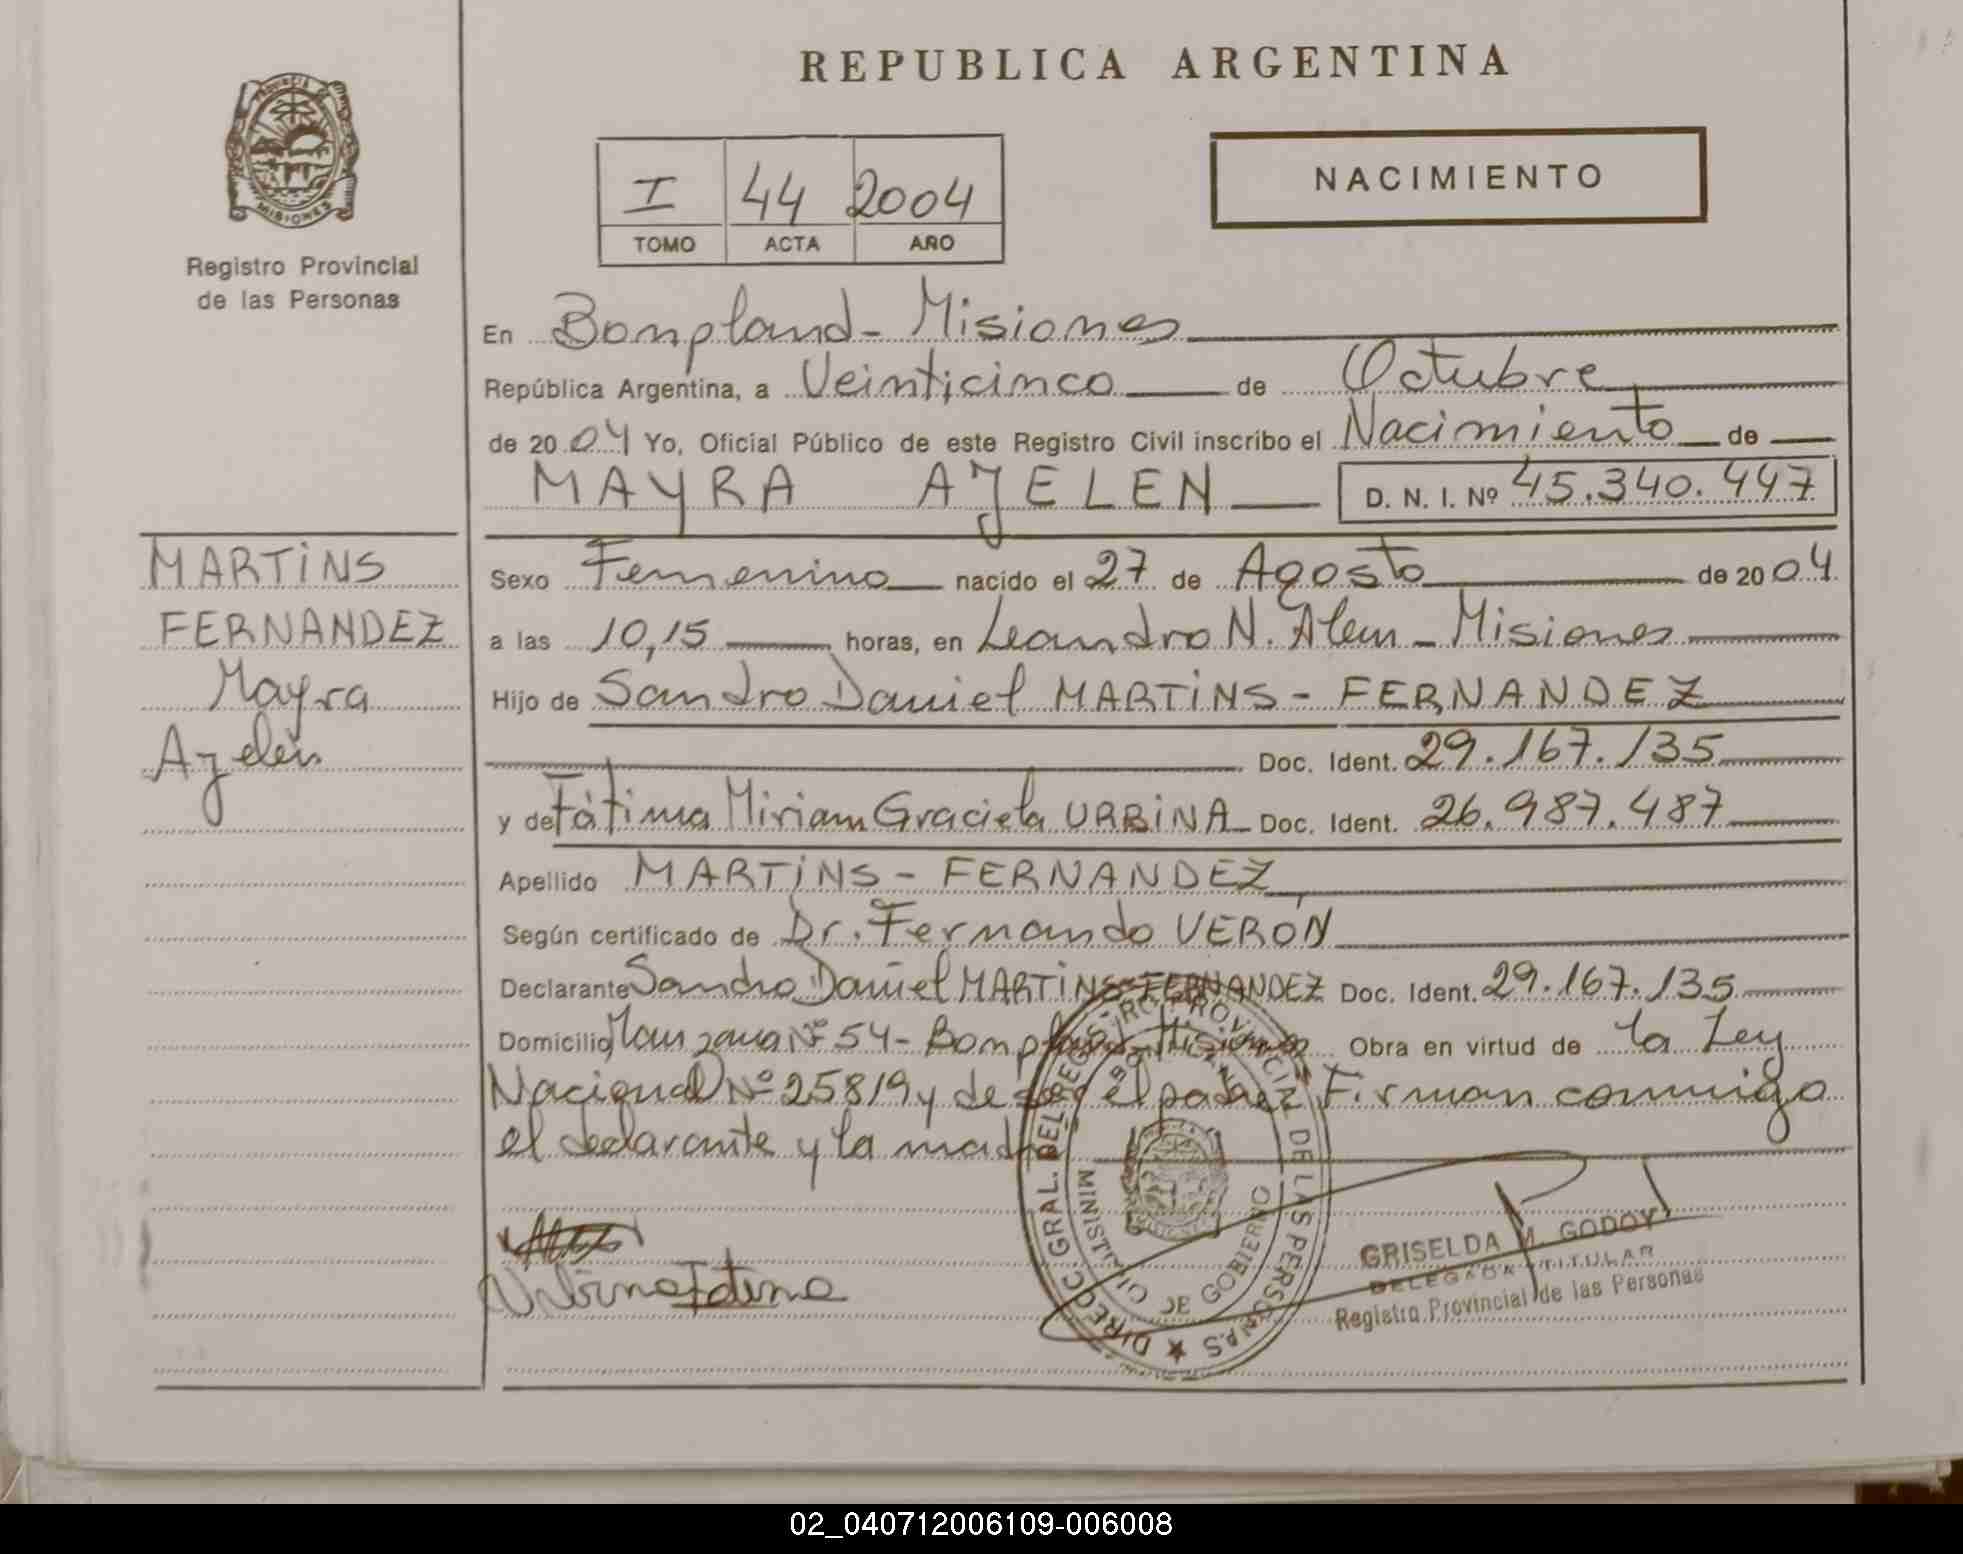 REPUBLICA ARGENTINA
PROVINCIA DE
MISIONES
Registro Provincial
de las Personas
I 44 2004
TOMO ACTA AÑO
NACIMIENTO
En Bonpland - Misiones
República Argentina, a Veinticinco de Octubre
de 20 04 Yo, Oficial Público de este Registro Civil inscribo el Nacimiento de
MAYRA AYELEN D. N. I. Nº 45.340.447
MARTINS
FERNANDEZ
Mayra
Ayelen
Sexo Femenino nacido el 27 de Agosto de 20 04
a las 10,15 horas, en Leandro N. Alem - Misiones
Hijo de Sandro Daniel MARTINS - FERNANDEZ
Doc. Ident. 29.167.135
y de Fátima Miriam Graciela URBINA Doc. Ident. 26.987.487
Apellido MARTINS - FERNANDEZ
Según certificado de Dr. Fernando VERÓN
Declarante Sandro Daniel MARTINS-FERNANDEZ Doc. Ident. 29.167.135
Domicilio Manzana Nº 54 - Bonpland - Misiones Obra en virtud de la Ley
Nacional Nº 25819 y de ser el padre Firman conmigo
el declarante y la madre
Urbina Fatima
DIRECC. GRAL. DEL REG. PROVINCIAL DE LAS PERSONAS
DE GOBIERNO
GRISELDA M. GODOY
DELEGADA TITULAR
Registro Provincial de las Personas
02_040712006109-006008